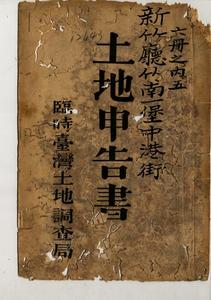 六冊之内五
新竹廳竹南一堡中港街
土地申告書
臨時臺灣土地調查局